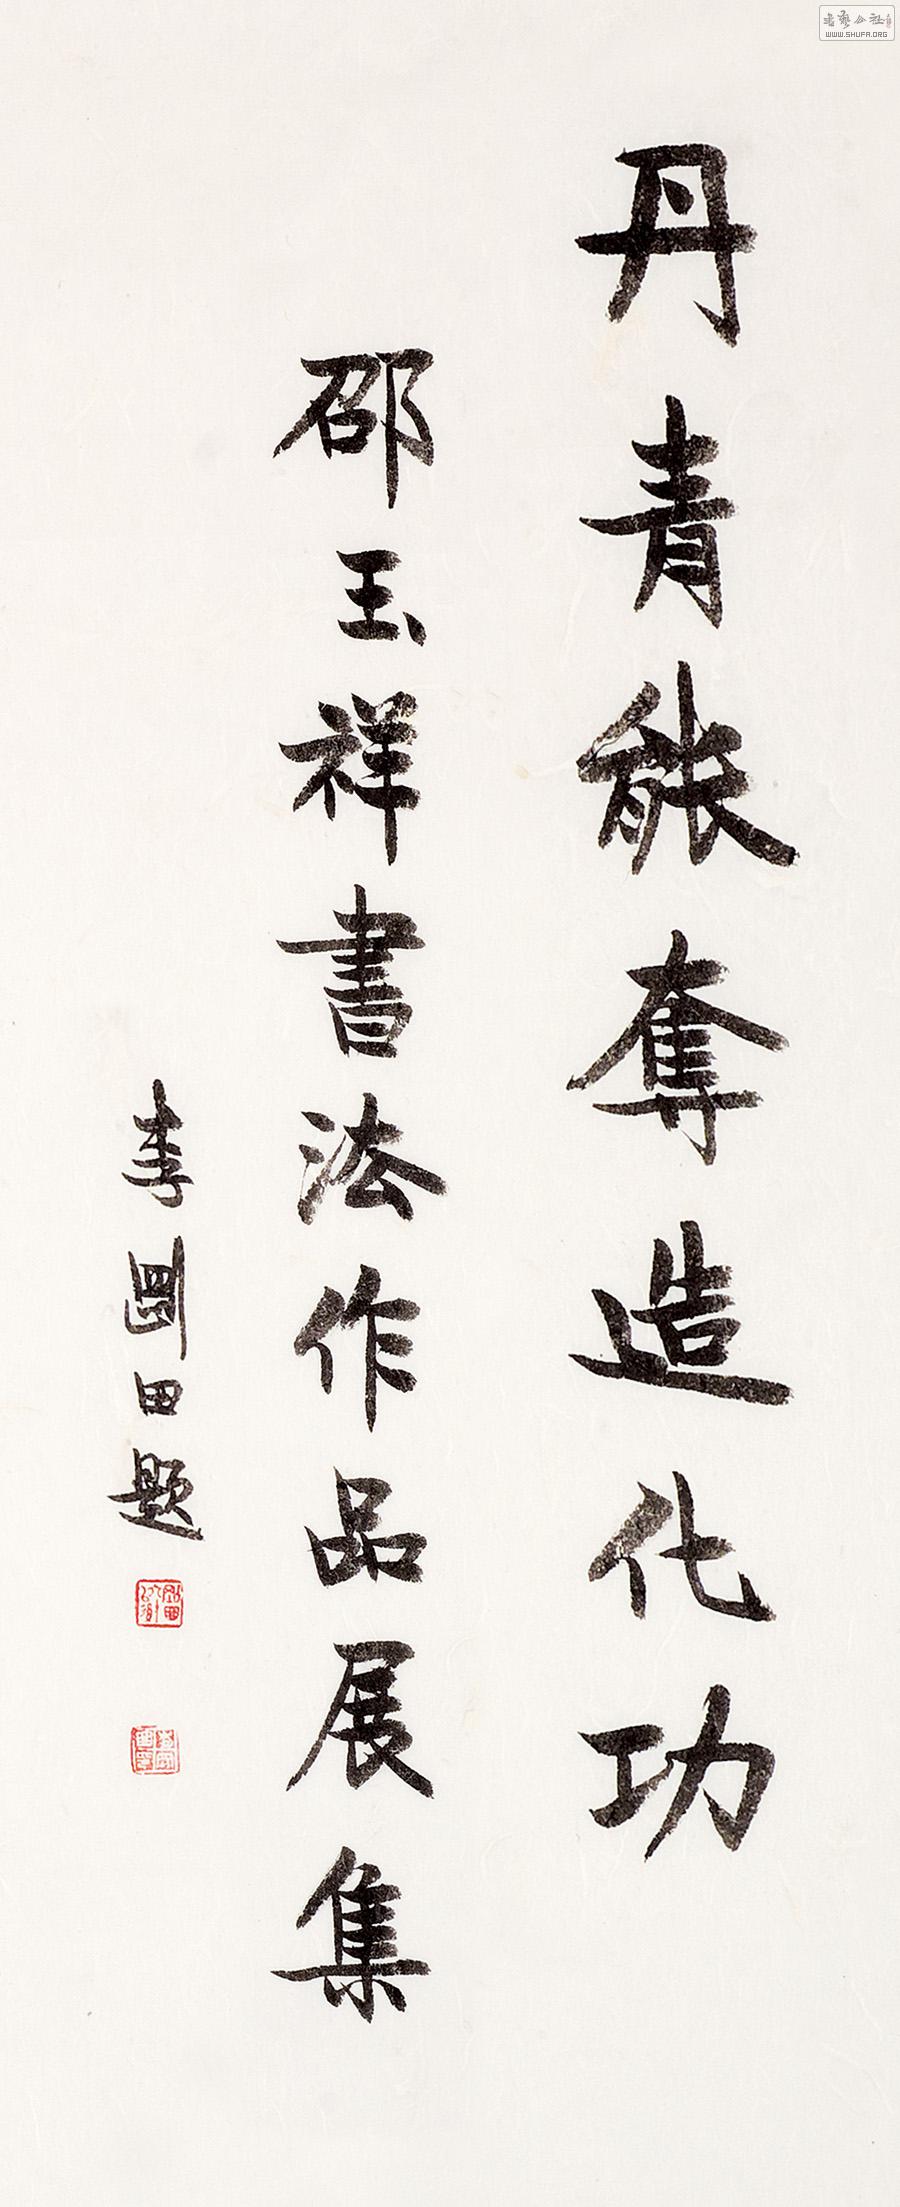 丹青能奪造化功
邵玉祥書法作品展集
李剛田題
書藝公社
WWW.SHUFA.ORG